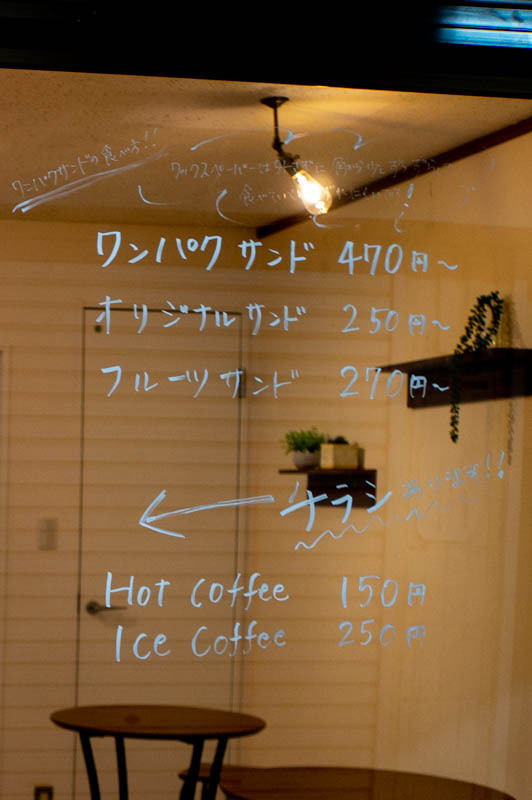 ワンパクサンドの食べ方!!
ワックスペーパーは外さずに
ワンパクサンド 470円～
オリジナルサンド 250円～
フルーツサンド 270円～
← チラシあります!!
Hot coffee 150円
Ice coffee 250円